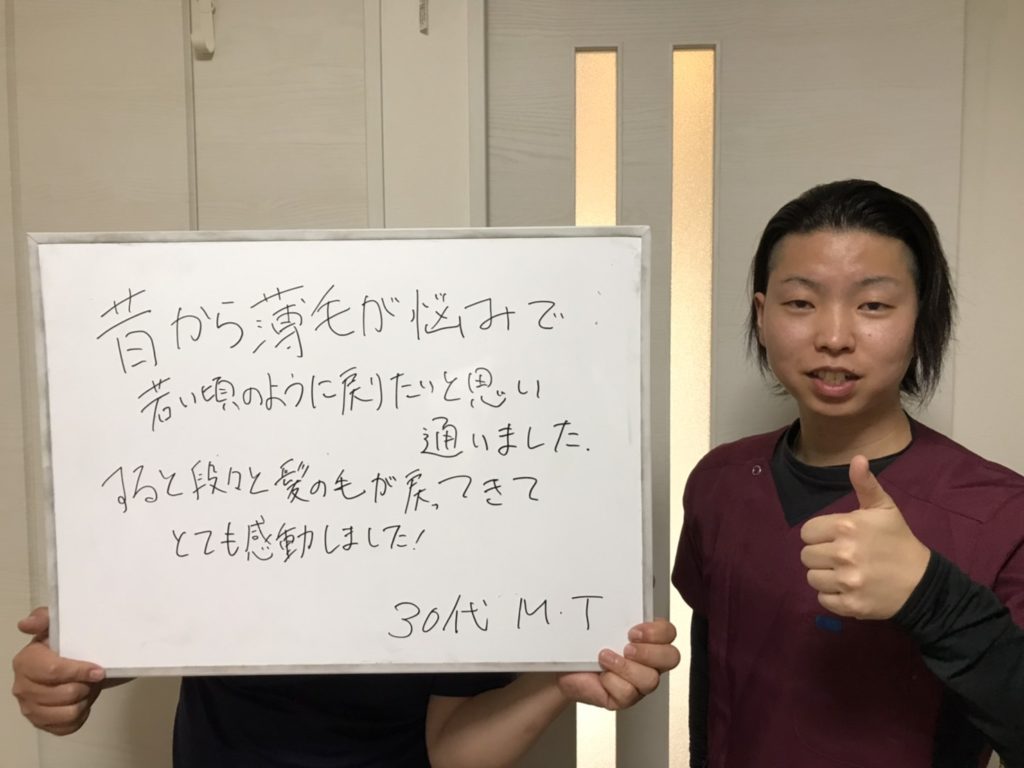 昔から薄毛が悩みで
若い頃のように戻りたいと思い
通いました.
すると段々と髪の毛が戻ってきて
とても感動しました!
30代 M.T